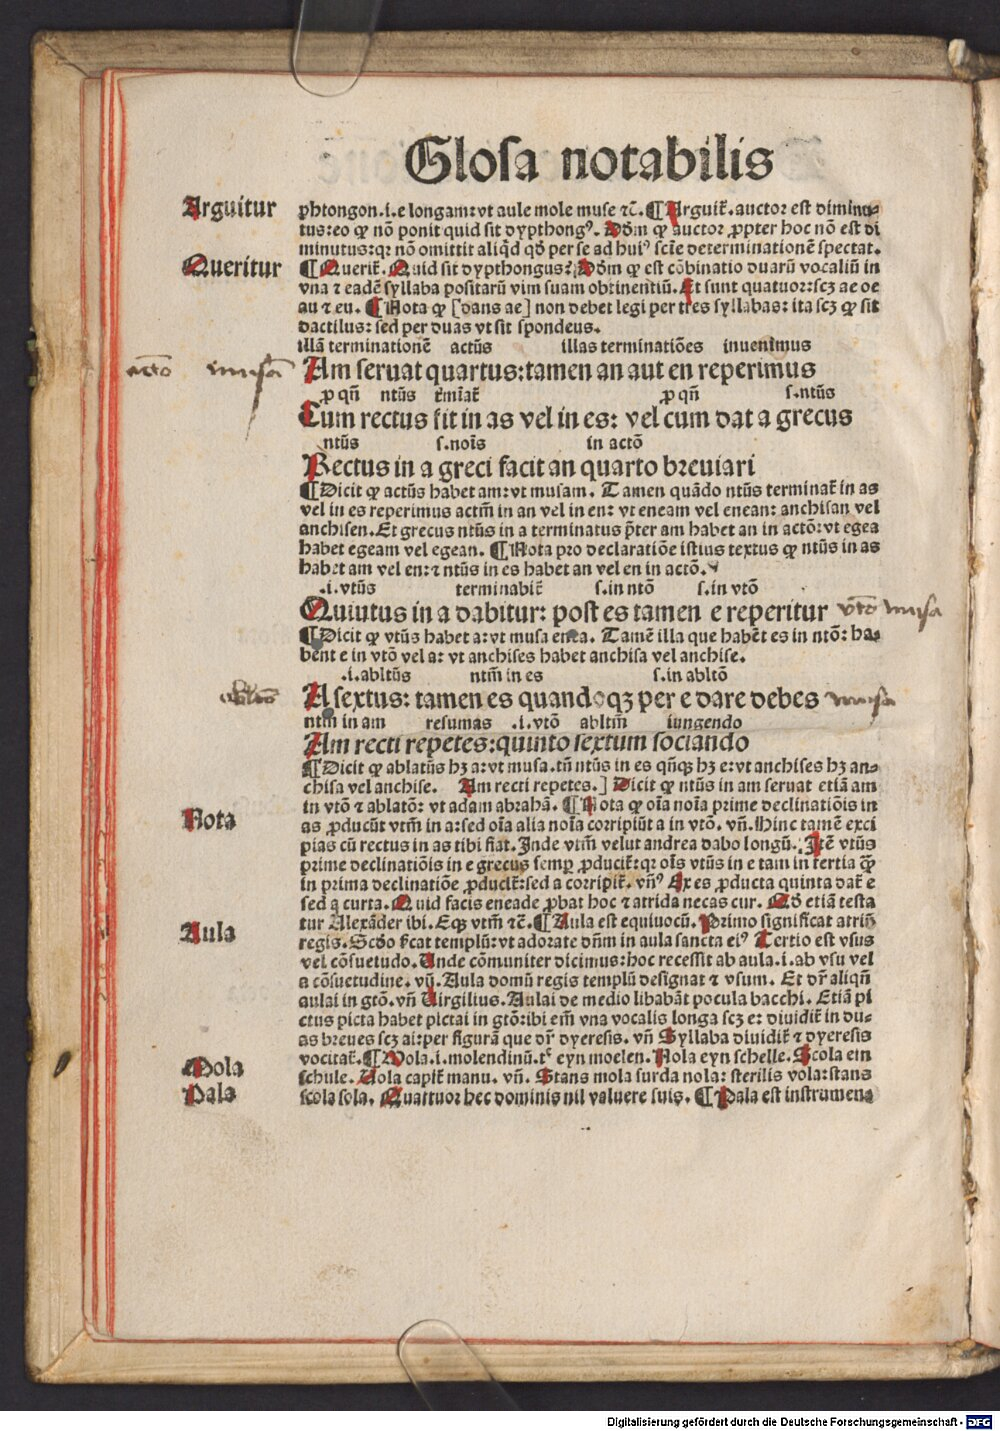 Glosa notabilis
Arguitur
phtongon.i.e longam:vt aule mole muse ⁊c̄.¶Arguit̄.auctor est diminu-
tus:eo ꝙ nō ponit quid sit dypthongꝰ. Dd̄m ꝙ auctor ꝓpter hoc nō est di
minutus:qꝛ nō omittit aliq̄d qd̄ per se ad huiꝰ scīe determinationē spectat.
Queritur
¶Querit̄.Quid sit dypthongus? Dd̄m ꝙ est cōbinatio duarū vocaliū in
vna ⁊ eadē syllaba positarū vim suam obtinentiū.Et sunt quatuor:scꝫ ae oe
au ⁊ eu. ¶Nota ꝙ [dans ae] non debet legi per tres syllabas: ita scꝫ ꝙ sit
dactilus: sed per duas vt sit spondeus.
illā terminationē actūs illas terminatiōes inuenimus
actō musā Am seruat quartus:tamen an aut en reperimus
ꝓ qn̄ ntūs t̄mīat̄ ꝓ qn̄ s.ntūs
Cum rectus fit in as vel in es: vel cum dat a grecus
ntūs s.noīs in actō
Rectus in a greci facit an quarto breuiari
¶Dicit ꝙ actūs habet am:vt musam. Tamen quādo ntūs terminat̄ in as
vel in es reperimus actm̄ in an vel in en: vt eneam vel enean: anchisan vel
anchisen.Et grecus ntūs in a terminatus p̄ter am habet an in actō:vt egea
habet egeam vel egean. ¶Nota pro declaratiōe istius textus ꝙ ntūs in as
habet am vel en:⁊ ntūs in es habet an vel en in actō.
.i.vtūs terminabit̄ s.in ntō s.in vtō
Quiutus in a dabitur: post es tamen e reperitur vtō musa
¶Dicit ꝙ vtūs habet a:vt musa enea. Tamē illa que habēt es in ntō: ha-
bent e in vtō vel a: vt anchises habet anchisa vel anchise.
.i.abltūs ntm̄ in es s.in abltō
A sextus: tamen es quandoqꝫ per e dare debes musa
ntm̄ in am resumas .i.vtō abltm̄ iungendo
Am recti repetes:quinto sextum sociando
¶Dicit ꝙ ablatūs hꝫ a:vt musa.tn̄ ntūs in es qn̄qꝫ hꝫ e:vt anchises hꝫ an-
chisa vel anchise. Am recti repetes.] Dicit ꝙ ntūs in am seruat etiā am
in vtō ⁊ ablatō: vt adam abrahā. ¶Nota ꝙ oīa noīa prime declinatiōis in
Nota
as ꝓducūt vtm̄ in a:sed oīa alia noīa corripiūt a in vtō. vn̄.Hinc tamē exci
pias cū rectus in as tibi fiat.Inde vtm̄ velut andrea dabo longū. Itē vtūs
prime declinatiōis in e grecus semꝑ ꝓducit̄:qꝛ oīs vtūs in e tam in tertia ꝙ̄
in prima declinatiōe ꝓducit̄:sed a corripit̄. vn̄ꝰ Ex es ꝓducta quinta dat̄ e
sed a curta. Quid facis eneade ꝓbat hoc ⁊ atrida necas cur. Qd̄ etiā testa
tur Alexāder ibi. Eqꝫ vtm̄ ⁊c̄.¶Aula est equiuocū. Primo significat atriū
Aula
regis.Scd̄o s̄cat templū:vt adorate dn̄m in aula sancta eiꝰ Tertio est vsus
vel cōsuetudo. Unde cōmuniter dicimus:hoc recessit ab aula.i.ab vsu vel
a cōsuetudine. vn̄.Aula domū regis templū designat ⁊ vsum. Et dr̄ aliqn̄
aulai in gtō.vn̄ Uirgilius.Aulai de medio libabāt pocula bacchi. Etiā pi
ctus picta habet pictai in gtō:ibi em̄ vna vocalis longa scꝫ e: diuidit̄ in du-
as breues scꝫ ai:per figurā que dr̄ dyeresis. vn̄ Syllaba diuidit̄ ⁊ dyeresis
Mola
vocitat̄.¶Mola.i.molendinū.tˢ eyn moelen. Nola eyn schelle. Scola ein
schule. Uola capit̄ manu. vn̄. Stans mola surda nola: sterilis vola:stans
Pala
scola sola. Quattuor hec dominis nil valuere suis. ¶Pala est instrumen-
Digitalisierung gefördert durch die Deutsche Forschungsgemeinschaft - DFG